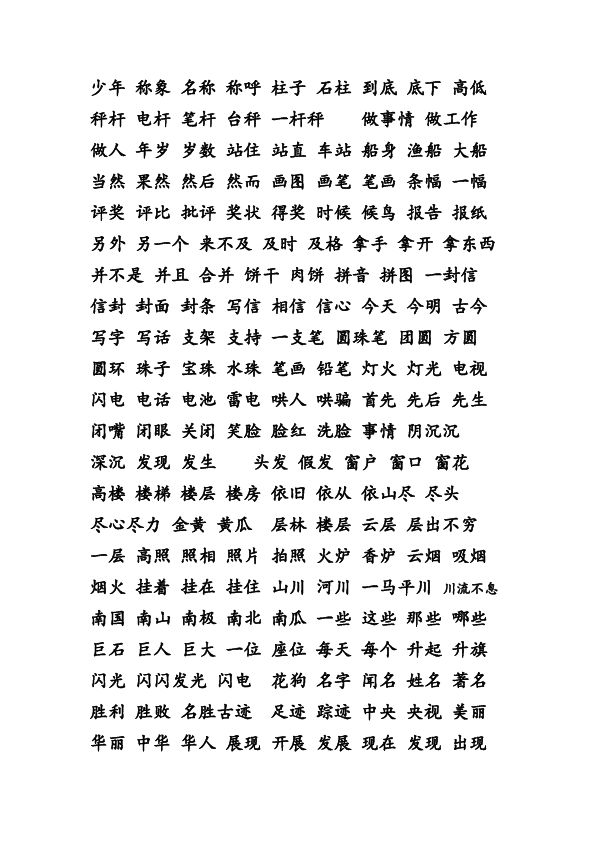 少年 称象 名称 称呼 柱子 石柱 到底 底下 高低
秤杆 电杆 笔杆 台秤 一杆秤 做事情 做工作
做人 年岁 岁数 站住 站直 车站 船身 渔船 大船
当然 果然 然后 然而 画图 画笔 笔画 条幅 一幅
评奖 评比 批评 奖状 得奖 时候 候鸟 报告 报纸
另外 另一个 来不及 及时 及格 拿手 拿开 拿东西
并不是 并且 合并 饼干 肉饼 拼音 拼图 一封信
信封 封面 封条 写信 相信 信心 今天 今明 古今
写字 写话 支架 支持 一支笔 圆珠笔 团圆 方圆
圆环 珠子 宝珠 水珠 笔画 铅笔 灯火 灯光 电视
闪电 电话 电池 雷电 哄人 哄骗 首先 先后 先生
闭嘴 闭眼 关闭 笑脸 脸红 洗脸 事情 阴沉沉
深沉 发现 发生 头发 假发 窗户 窗口 窗花
高楼 楼梯 楼层 楼房 依旧 依从 依山尽 尽头
尽心尽力 金黄 黄瓜 层林 楼层 云层 层出不穷
一层 高照 照相 照片 拍照 火炉 香炉 云烟 吸烟
烟火 挂着 挂在 挂住 山川 河川 一马平川 川流不息
南国 南山 南极 南北 南瓜 一些 这些 那些 哪些
巨石 巨人 巨大 一位 座位 每天 每个 升起 升旗
闪光 闪闪发光 闪电 花狗 名字 闻名 姓名 著名
胜利 胜败 名胜古迹 足迹 踪迹 中央 央视 美丽
华丽 中华 华人 展现 开展 发展 现在 发现 出现